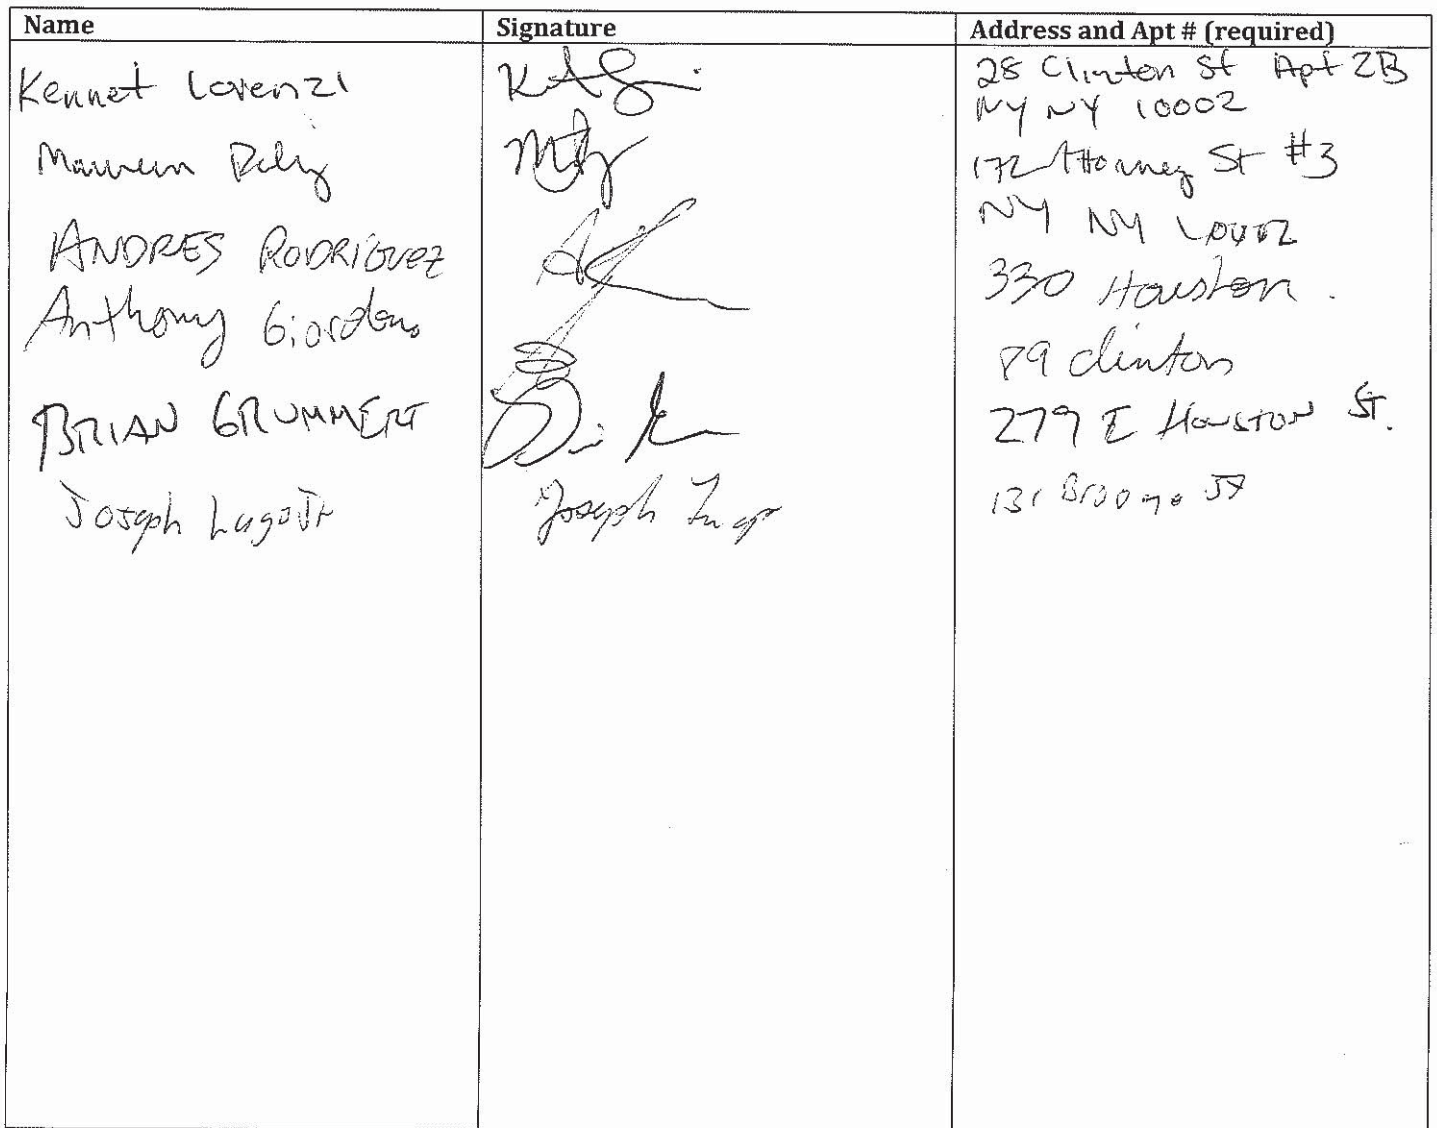 Name Signature Address and Apt # (required)
Kennet Lorenzi 28 Clinton St Apt 2B
NY NY 10002
Maureen Daly 172 Attorney St #3
NY NY 10002
ANDRES RODRIGUEZ 330 Houston.
Anthony Giordano 89 clinton
BRIAN GRUMMERT 279 E HOUSTON ST.
Joseph Lugo Jr Joseph Lugo 131 Broome St